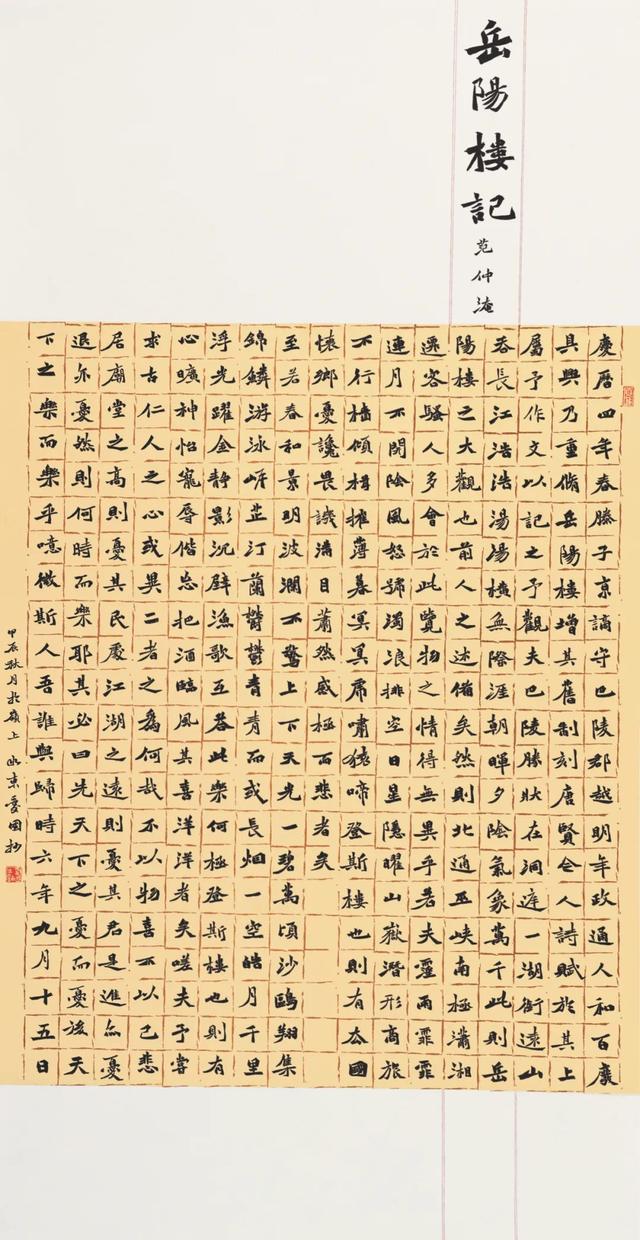 岳陽樓記
范仲淹
慶曆四年春滕子京謫守巴陵郡越明年政通人和百廢
具興乃重脩岳陽樓增其舊制刻唐賢今人詩賦於其上
屬予作文以記之予觀夫巴陵勝狀在洞庭一湖銜遠山
吞長江浩浩湯湯橫無際涯朝暉夕陰氣象萬千此則岳
陽樓之大觀也前人之述備矣然則北通巫峽南極瀟湘
遷客騷人多會於此覽物之情得無異乎若夫霪雨霏霏
連月不開陰風怒號濁浪排空日星隱曜山嶽潛形商旅
不行檣傾楫摧薄暮冥冥虎嘯猿啼登斯樓也則有去國
懷鄉憂讒畏譏滿目蕭然感極而悲者矣
至若春和景明波瀾不驚上下天光一碧萬頃沙鷗翔集
錦鱗游泳岸芷汀蘭鬱鬱青青而或長烟一空皓月千里
浮光躍金靜影沉璧漁歌互答此樂何極登斯樓也則有
心曠神怡寵辱偕忘把酒臨風其喜洋洋者矣嗟夫予嘗
求古仁人之心或異二者之爲何哉不以物喜不以己悲
居廟堂之高則憂其民處江湖之遠則憂其君是進亦憂
退亦憂然則何時而樂耶其必曰先天下之憂而憂後天
下之樂而樂乎噫微斯人吾誰與歸時六年九月十五日
甲辰秋月於嶺上 東愛國抄